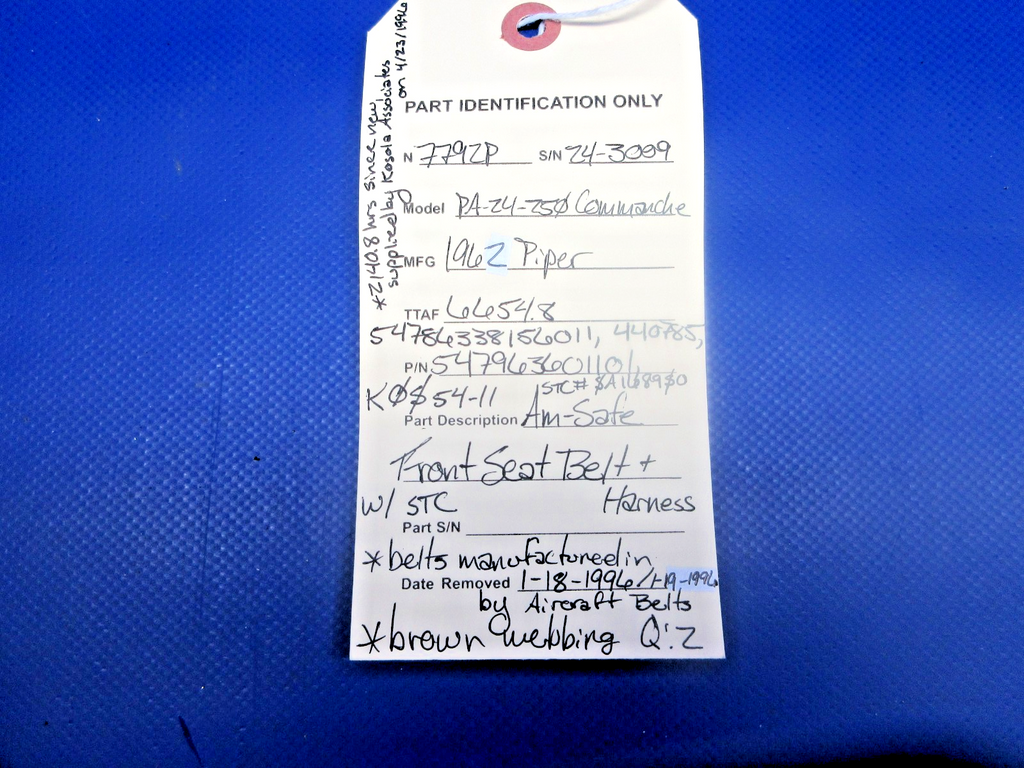 *2140.8 hrs since new,
supplied by Kosola Associates
on 4/23/1996
PART IDENTIFICATION ONLY
N 7792P S/N 24-3009
Model PA-24-250 Commanche
MFG 1962 Piper
TTAF 6654.8
54786338156011, 440785,
P/N 547963601101,
STC# SA1689SO
KOS54-11
Part Description Am-Safe
Front Seat Belt +
w/ STC Harness
Part S/N
*belts manufactured in
Date Removed 1-18-1996/1-19-1996
by Aircraft Belts
*brown webbing Q:2